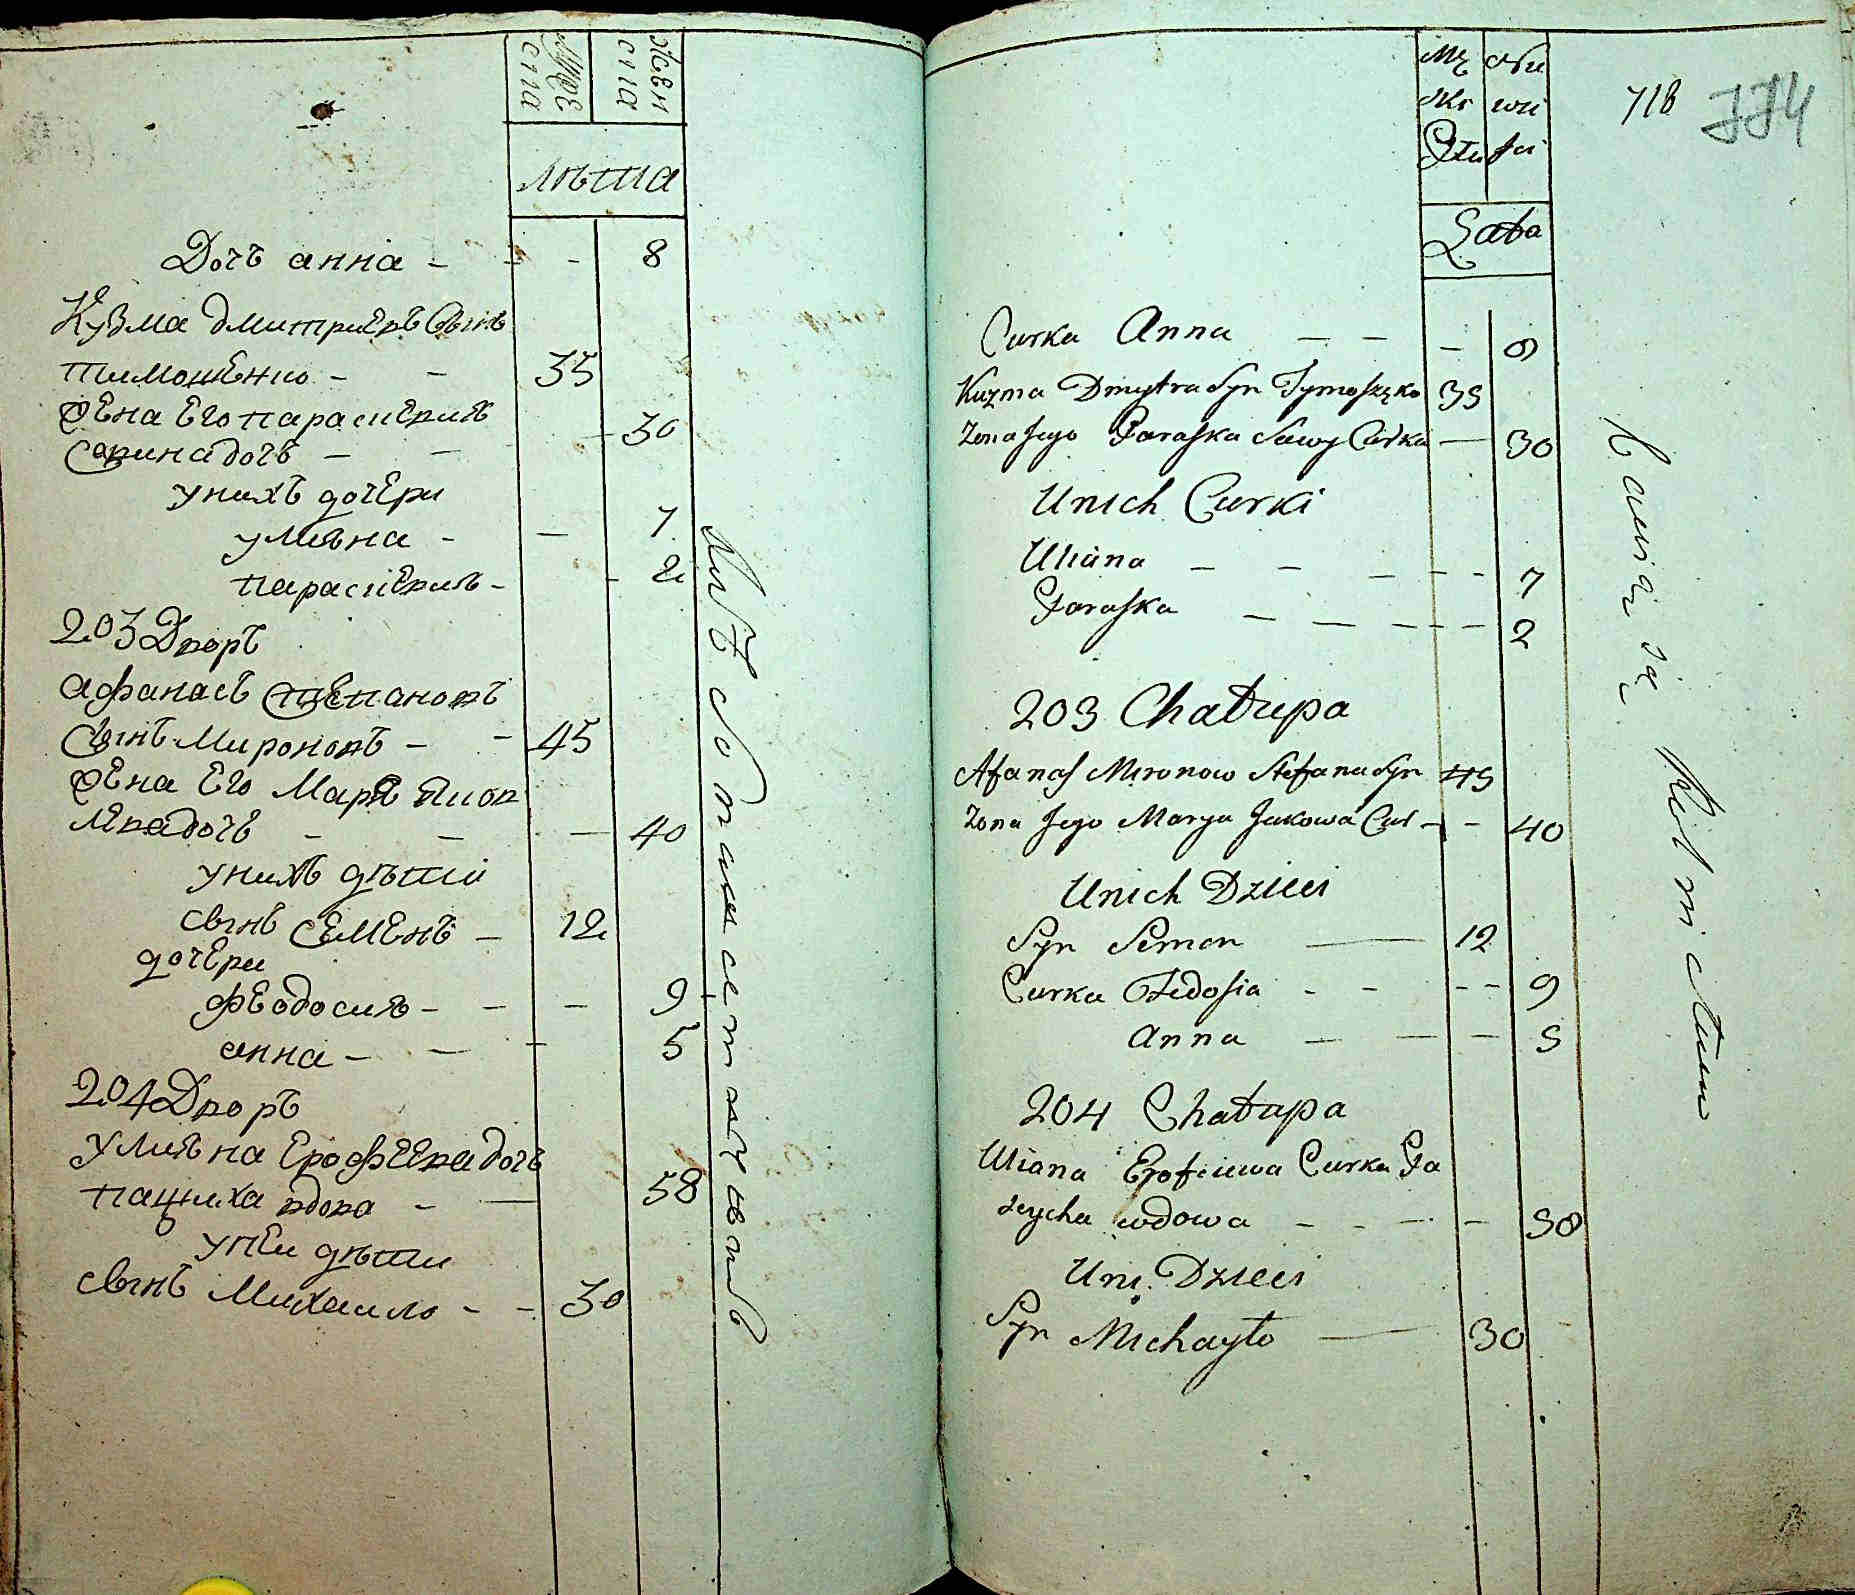 Мужеска
Женска
лѣта
Дочъ анна - - - 8
Кузма дмитриевъ Сынъ
тимошенко - - 35
Жена Его параскевия
Савина дочъ - - - 30
унихъ дочери
улияна - - 7
параскевия - - 2
203 Дворъ
афанасъ Степановъ
Сынъ Мироновъ - - 45
Жена Его Маря Яков
лева дочъ - - - 40
унихъ дѣти
сынъ СЕМЕНЪ - 12
дочери
феодосия - - - 9
анна - - - 5
204 Дворъ
улияна Ерофеева дочъ
пащиха вдова - - 58
унеи дѣти
сынъ Михаило - - 30
718 714
Męskī
Płuſci
Lata
Curka Anna - - - 8
Kuzma Dmytra Syn Tymoſzęko 35
Zona Jego Paraſka Sawy Curka - 30
Unich Curki
Uliana - - - - - 7
Paraſka - - - - - 2
203 Chałupa
Afanaſ Mironow Stefana Syn 45
Zona Jego Marya Jakowa Cur - - 40
Unich Dzieci
Syn Semen - 12
Curka Fedoſia - - - - 9
Anna - - - 5
204 Chałupa
Uliana Erofiiewa Curka Pa
szycha wdowa - - - - 58
Uni Dzieci
Syn Michayło - 30